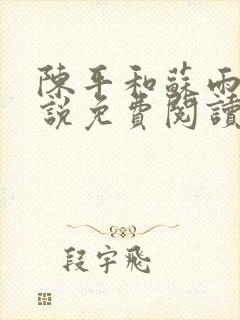 陳平和蘇雨
說免費閱讀
段宇飛